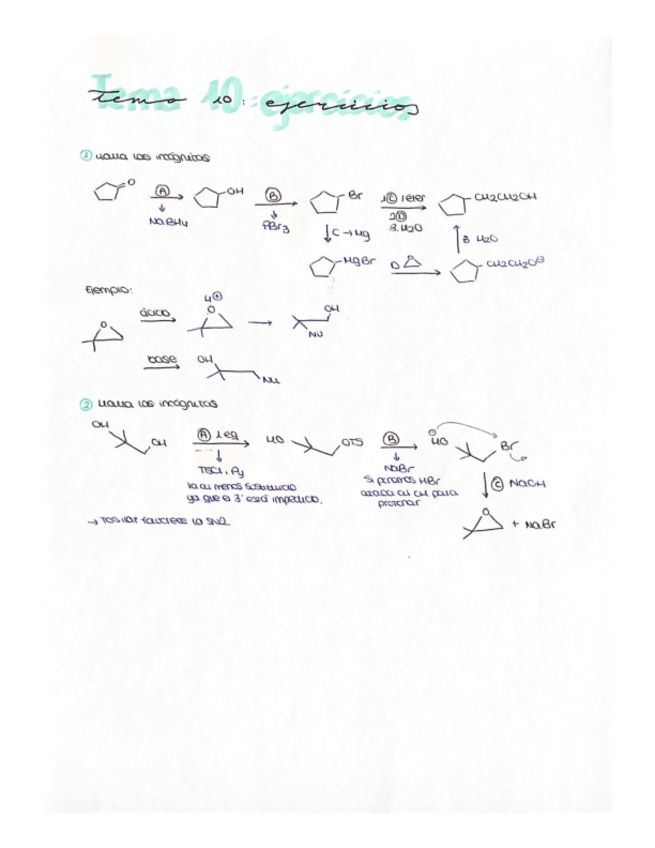 Tema 10: ejercicios
① Halla las incógnitas
O Ⓐ OH Ⓑ Br 1Ⓒ éter CH2CH2OH
NaBH4 PBr3 2Ⓓ
3. H2O
C → Mg 3 H2O
MgBr D O CH2CH2O⊖
Ejemplo:
ácido H⊕ O OH
O Nu
base OH
Nu
② Halla las incógnitas
OH OH Ⓐ 1 eq HO OTS Ⓑ ⊖ HO Br
TSCl, Py NaBr
va al menos sustituido Si ponemos HBr Ⓒ NaOH
ya que el 3º está impedido. ataca al OH para
protonar
→ Tosilar favorece la SN2. O + NaBr